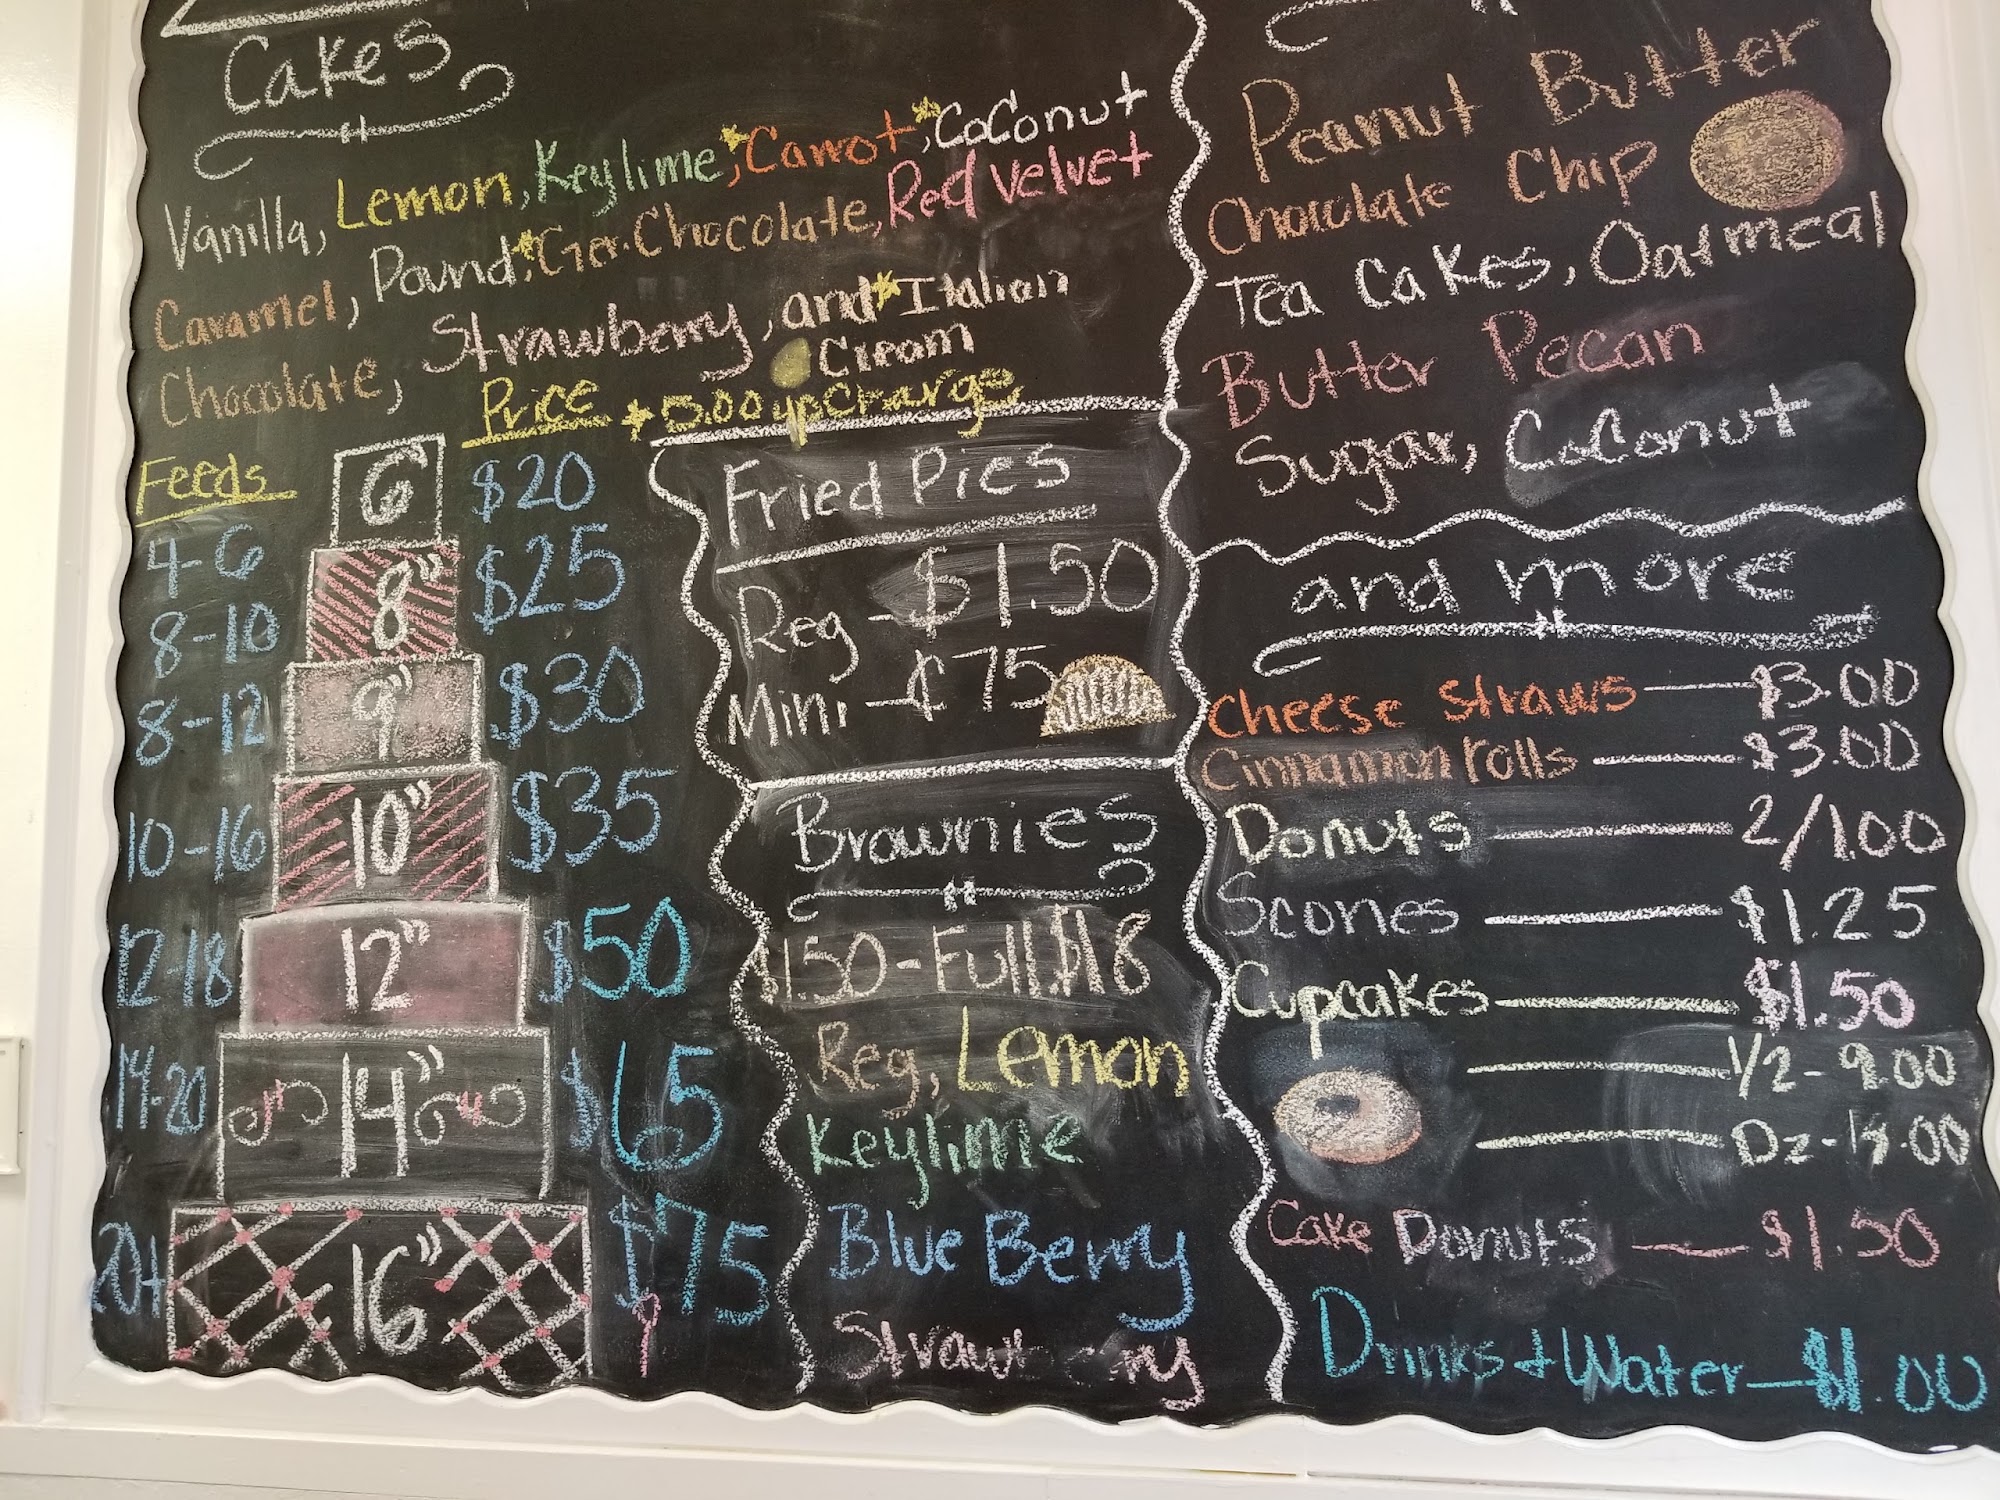 Cakes
Vanilla, Lemon, Keylime*, Carrot*, CoConut
Caramel, Pound,*Ger. Chocolate, Red Velvet
Chocolate, Strawberry, and *Italian
Cream
Price +5.00 upcharge
Feeds
4-6 6" $20
8-10 8" $25
8-12 9" $30
10-16 10" $35
12-18 12" $50
14-20 14" $65
20+ 16" $75
Fried Pies
Reg - $1.50
Mini - ¢75
Brownies
$1.50 - Full $18
Reg, Lemon
Keylime
Blue Berry
Strawberry
Peanut Butter
Chocolate Chip
Tea Cakes, Oatmeal
Butter Pecan
Sugar, CoConut
and more
Cheese Straws $3.00
Cinnamon rolls $3.00
Donuts 2/1.00
Scones $1.25
Cupcakes $1.50
1/2 - 9.00
Dz -
Cake Donuts $1.50
Drinks + Water $1.00